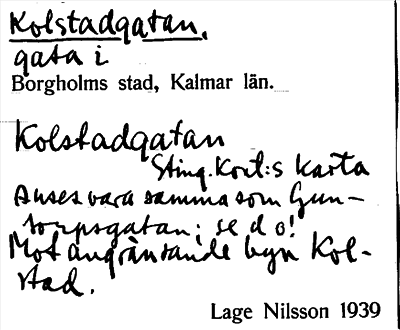 Kolstadgatan.
gata i
Borgholms stad, Kalmar län.
Kolstadgatan
Sting. Kort:s karta
Anses vara samma som Gun-
torpsgatan; se d o!
Mot angränsande byn Kol-
stad.
Lage Nilsson 1939